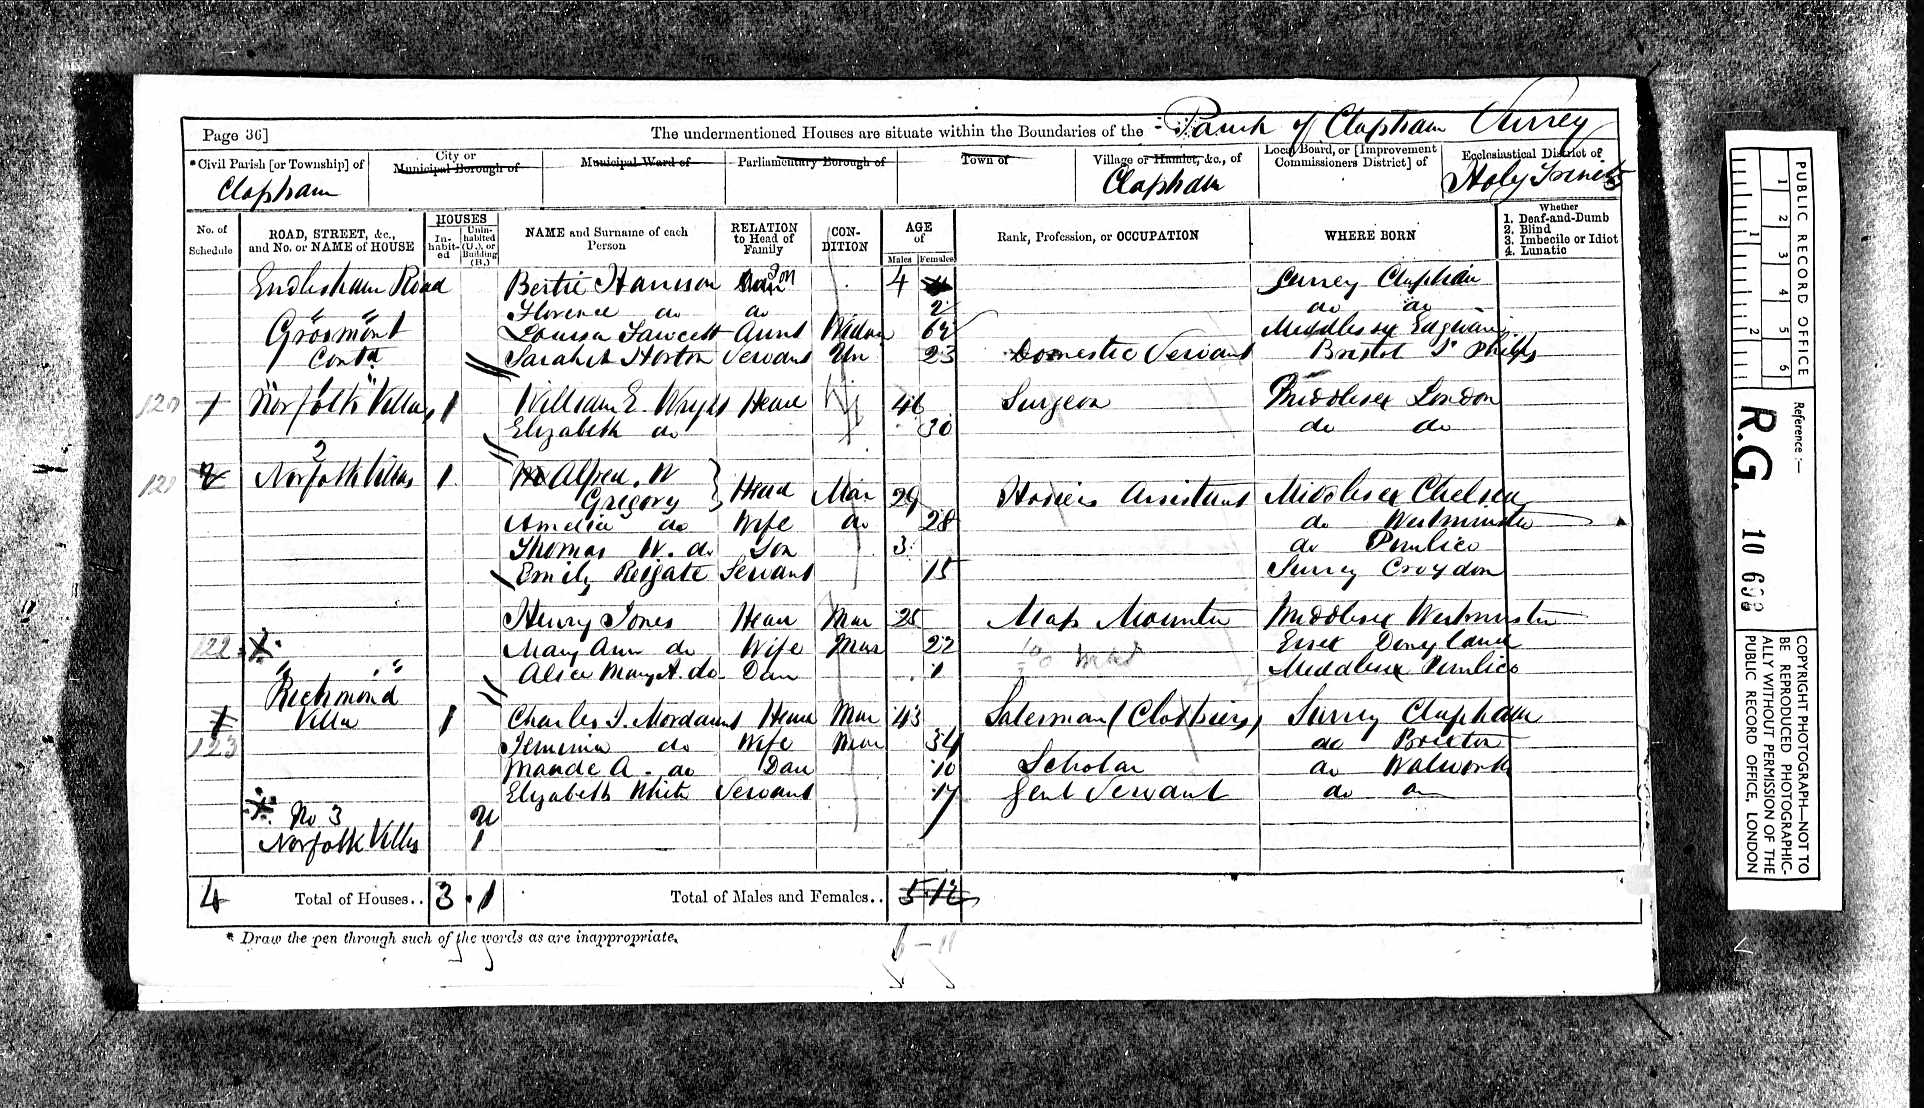 Page 36]
The undermentioned Houses are situate within the Boundaries of the Parish of Clapham Surrey
*Civil Parish [or Township] of
Clapham
City or Municipal Borough of
Municipal Ward of
Parliamentary Borough of
Town of
Village or Hamlet, &c., of
Clapham
Local Board, or [Improvement Commissioners District] of
Ecclesiastical District of
Holy Trinity
No. of Schedule
ROAD, STREET, &c., and No. or NAME of HOUSE
HOUSES
Inhabited
Uninhabited (U.), or Building (B.)
NAME and Surname of each Person
RELATION to Head of Family
CONDITION
AGE of
Males
Females
Rank, Profession, or OCCUPATION
WHERE BORN
Whether
1. Deaf-and-Dumb
2. Blind
3. Imbecile or Idiot
4. Lunatic
Road Bertie Harrison Son 4 Surrey Clapham
Florence do do 2 do do
Grosmont Louisa Fawcett Aunt Widow 62 Middlesex
Contd Sarah A Horton Servant Un 23 Domestic Servant Bristol St Philips
120 1 Norfolk Villas 1 William E. Head 46 Surgeon Middlesex London
Elizabeth do 30 do do
2
2 Norfolk Villas 1 Alfred W Gregory Head Mar 29 Hosiers Assistant Middlesex Chelsea
Amelia do Wife do 28 do Westminster
Thomas W. do Son 3 do Pimlico
Emily Reigate Servant 15 Surrey Croydon
Henry Jones Head Mar 25 Map Mounter Middlesex Westminster
122 Mary Ann do Wife Mar 22 Essex Donyland
" " Alice Mary A. do Dau 1 Middlesex Pimlico
Richmond
1 Villa 1 Charles J. Mordaunt Head Mar 43 Salesman (Clothiers) Surrey Clapham
123 Jemima do Wife Mar 34 do Brixton
Maude A. do Dau 10 Scholar do Walworth
Elizabeth White Servant 17 Genl Servant do do
No 3 U
Norfolk Villas 1
4 Total of Houses.. 3 1 Total of Males and Females.. 5 12
6 - 11
* Draw the pen through such of the words as are inappropriate.
PUBLIC RECORD OFFICE
1 2 3 4 5 6
1 2
Reference:—
R.G. 10 698
COPYRIGHT PHOTOGRAPH—NOT TO BE REPRODUCED PHOTOGRAPHICALLY WITHOUT PERMISSION OF THE PUBLIC RECORD OFFICE, LONDON